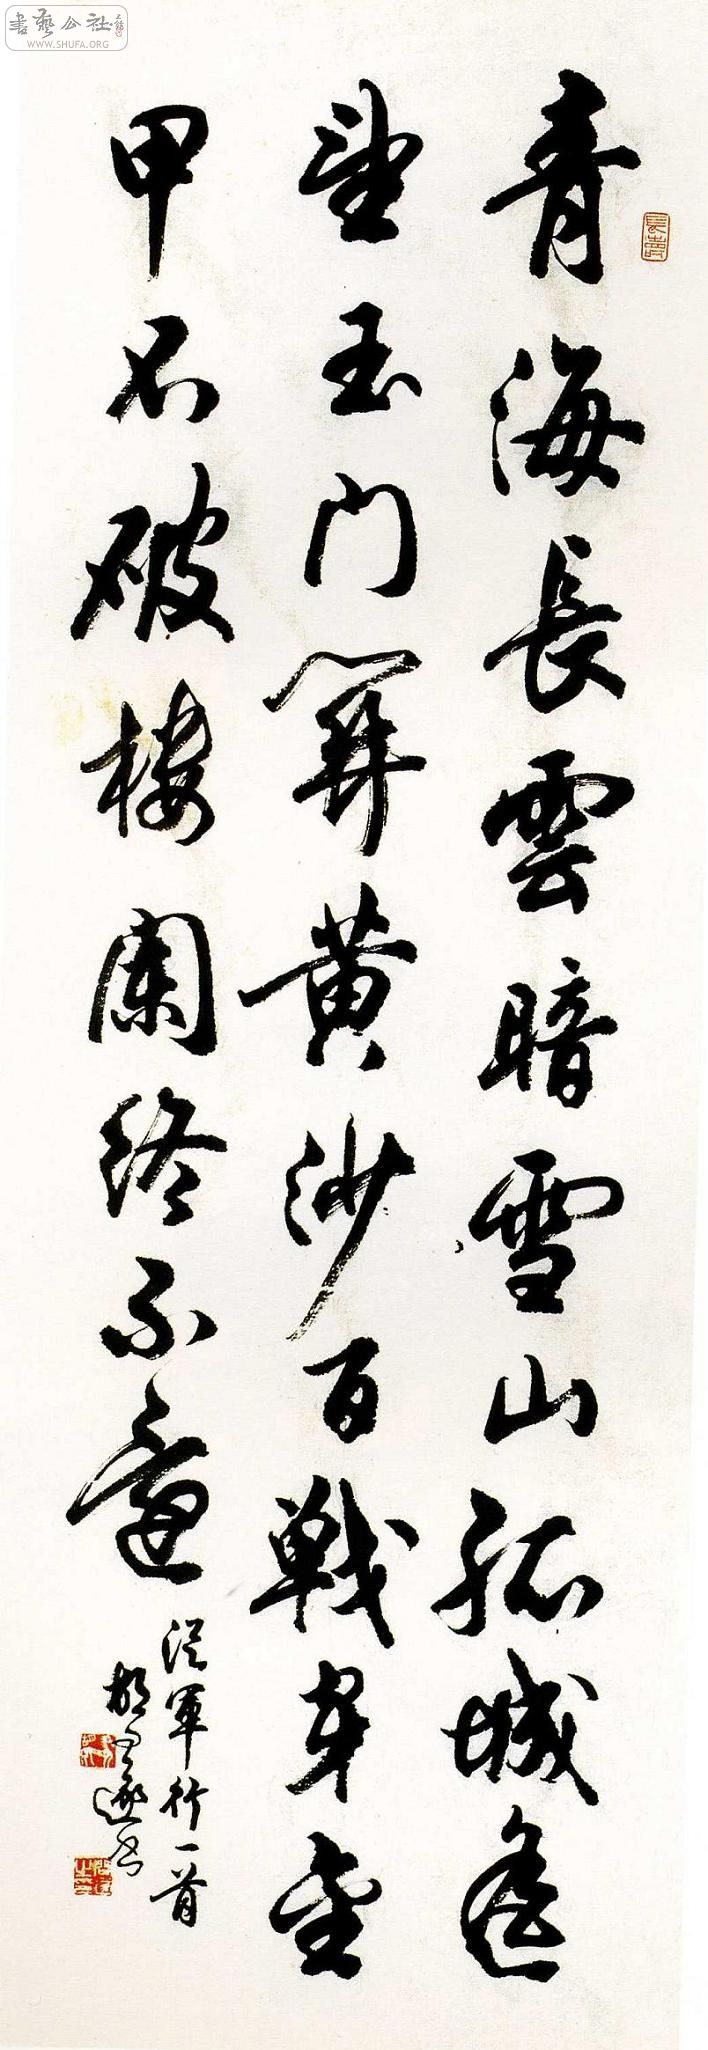 書藝公社
WWW.SHUFA.ORG
青海長雲暗雪山孤城遙
望玉门關黄沙百戰穿金
甲不破樓闌終不還
從軍行一首
胡问遂书